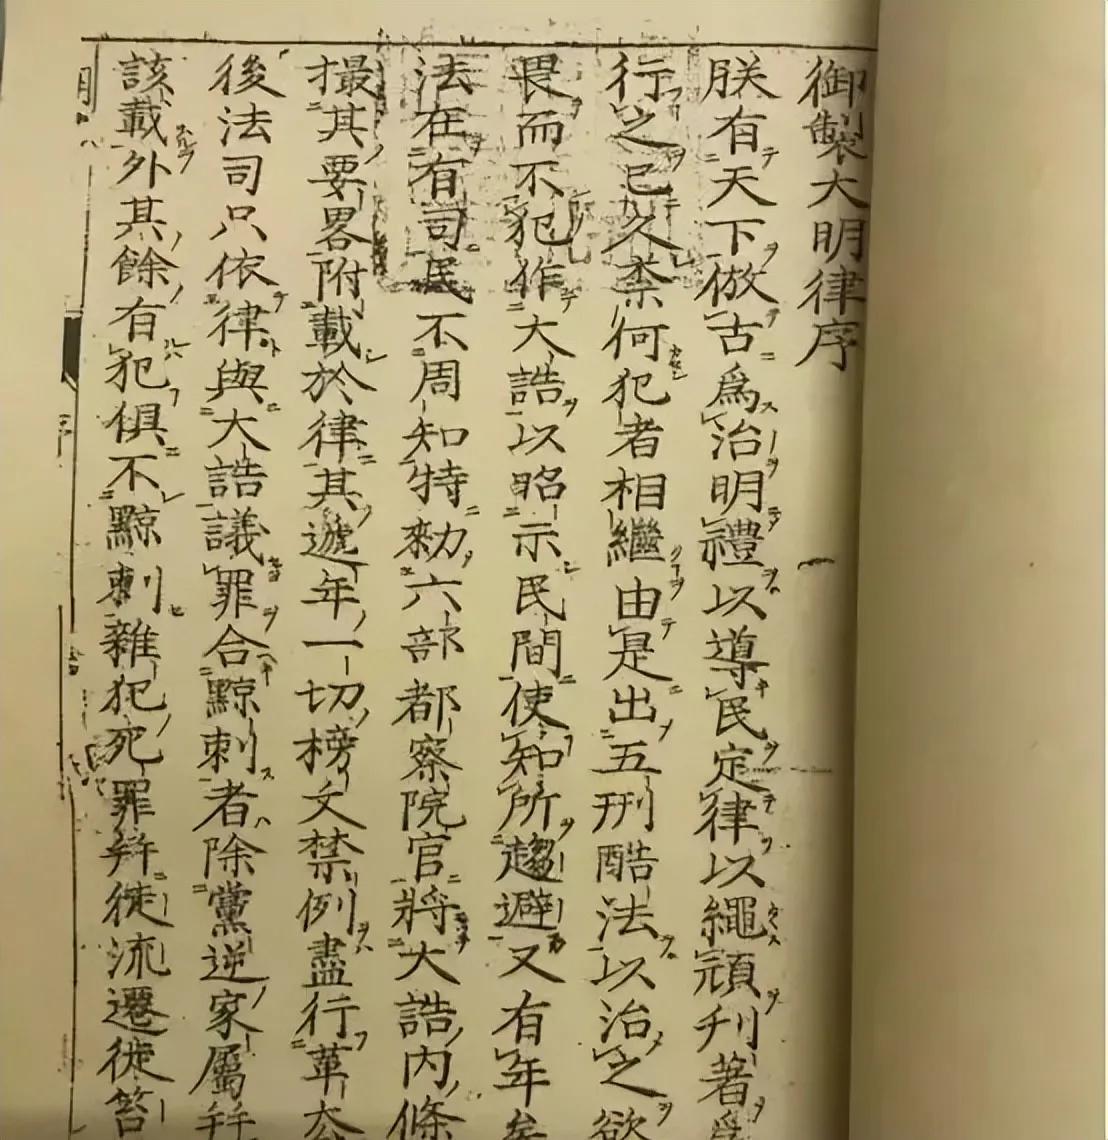 御製大明律序
朕有天下倣古爲治明禮以導民定律以繩頑刋著爲
行之已久柰何犯者相繼由是出五刑酷法以治之欲
畏而不犯作大誥以昭示民間使知所趨避又有年矣
法在有司民不周知特勑六部都察院官將大誥内條
撮其要畧附載於律其遞年一切榜文禁例盡行革去
後法司只依律與大誥議罪合黥刺者除黨逆家屬幷
該載外其餘有犯俱不黥刺雜犯死罪幷徒流遷徙笞